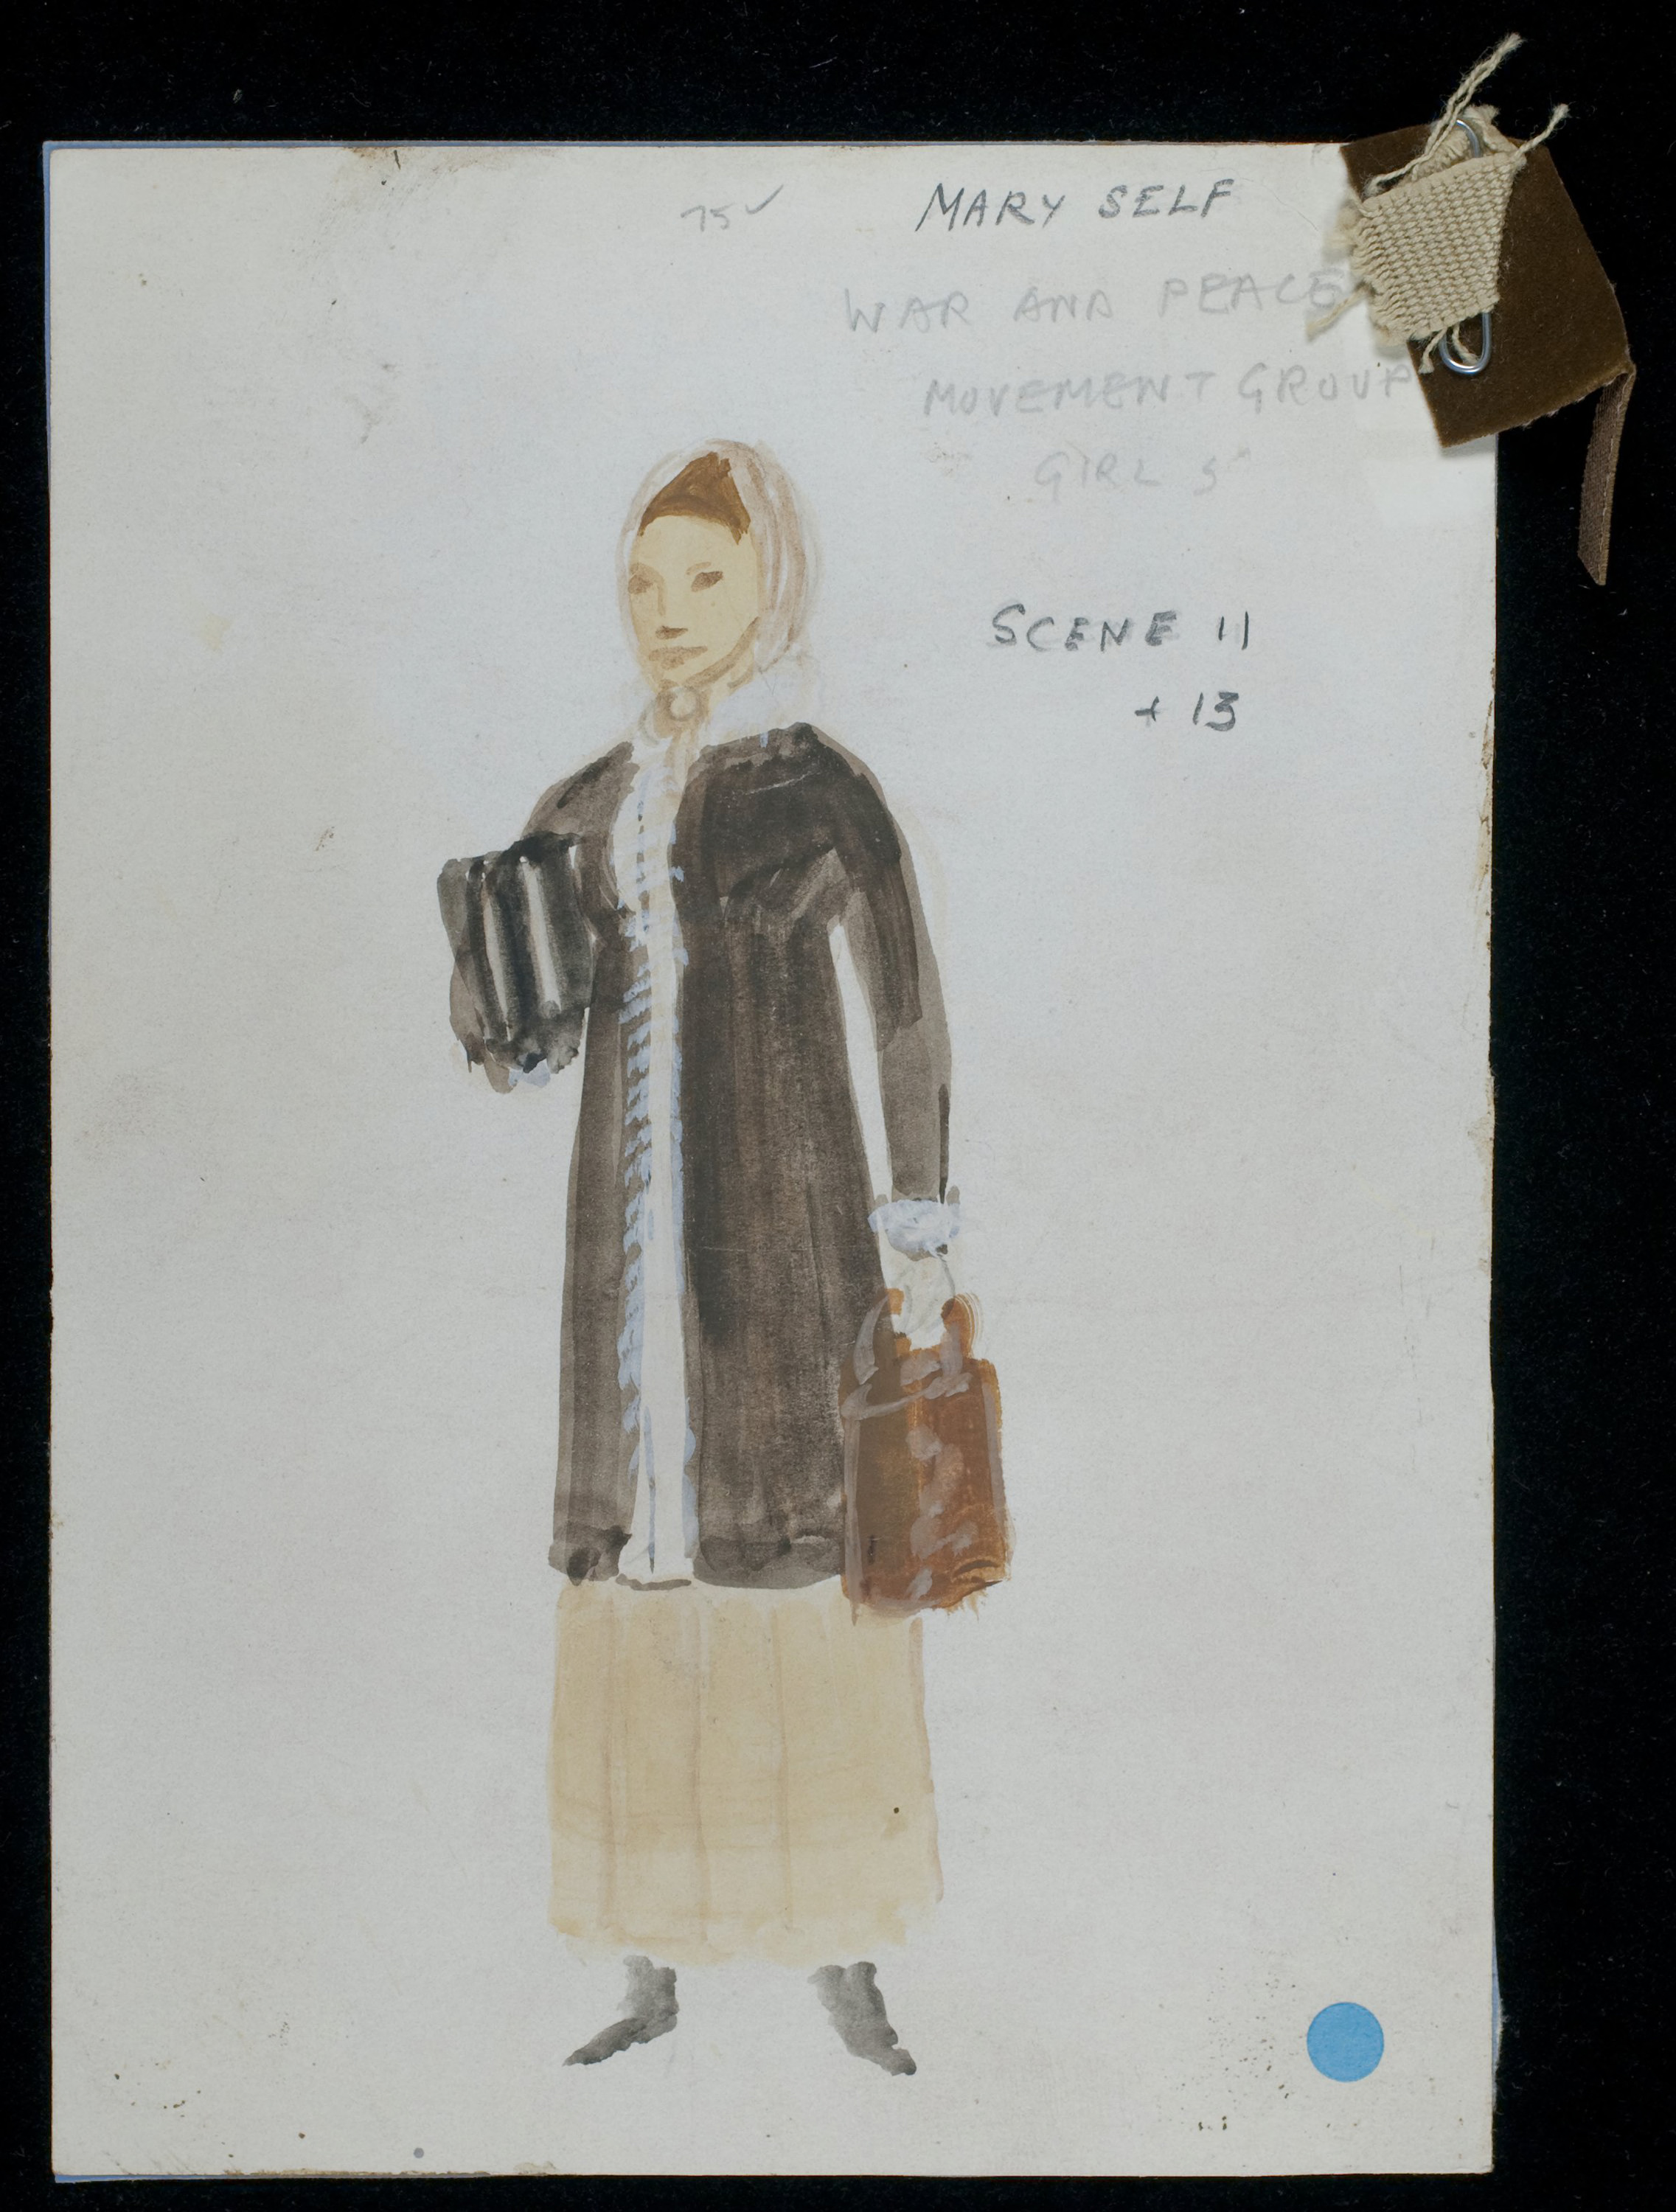 75 ✓ MARY SELF
WAR AND PEACE
MOVEMENT GROUP
GIRLS
SCENE 11
+ 13